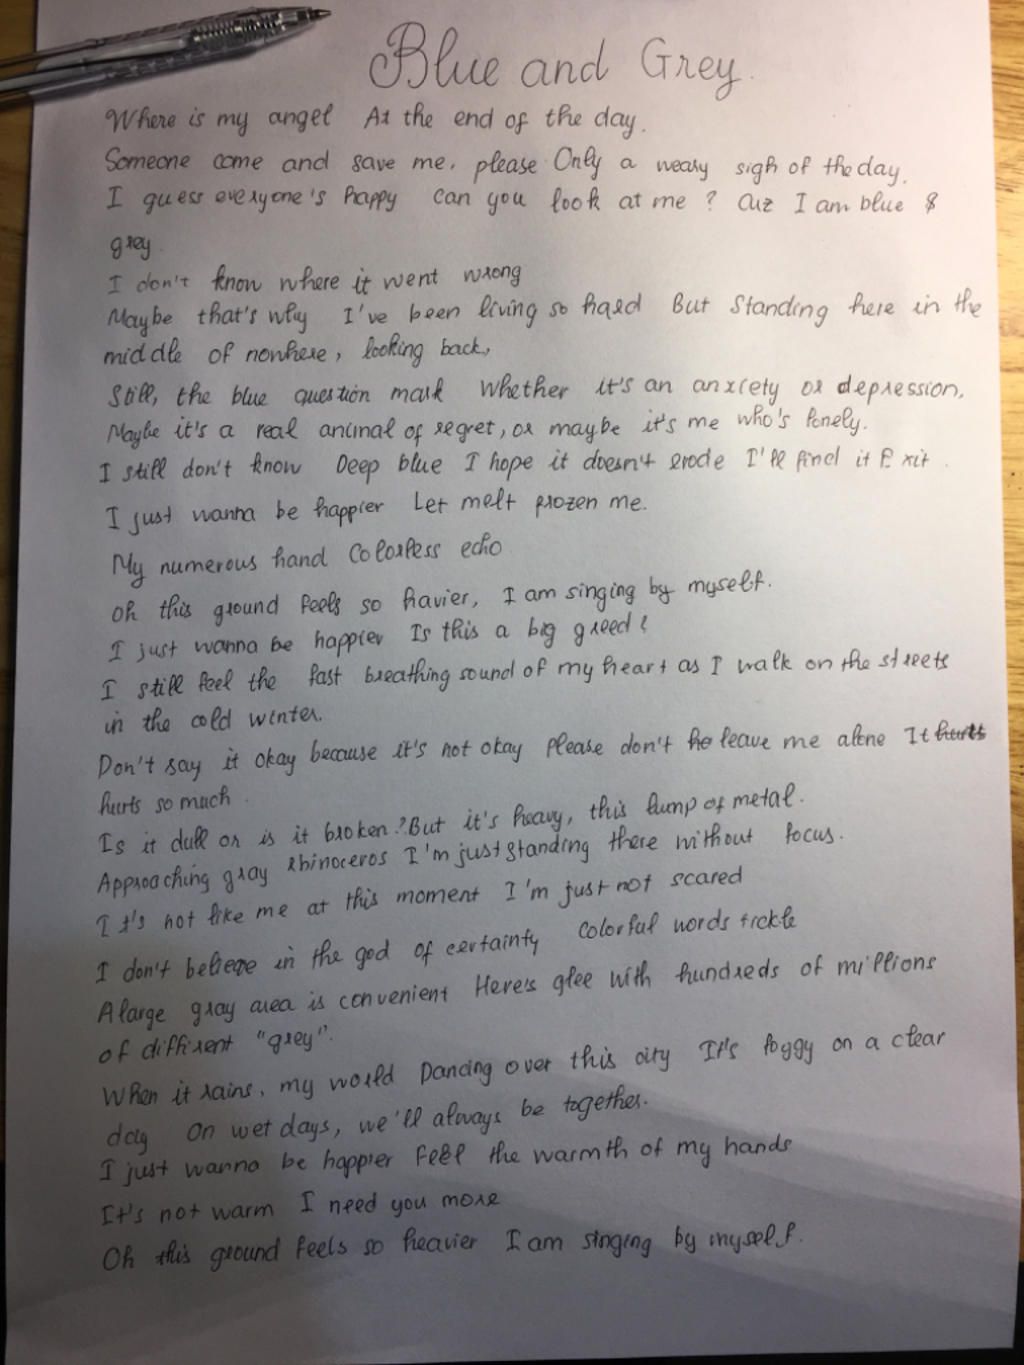 Blue and Grey.
Where is my angel At the end of the day.
Someone come and save me, please Only a weary sigh of the day.
I guess everyone's happy can you look at me? Cuz I am blue &
grey.
I don't know where it went wrong
Maybe that's why I've been living so hard But Standing here in the
middle of nowhere, looking back,
Still, the blue question mark whether it's an anxiety or depression.
Maybe it's a real animal of regret, or maybe it's me who's lonely.
I still don't know Deep blue I hope it doesn't erode I'll find it Exit.
I just wanna be happier Let melt frozen me.
My numerous hand Colorless echo
Oh this ground feels so havier, I am singing by myself.
I just wanna be happier Is this a big greed?
I still feel the fast breathing sound of my heart as I walk on the streets
in the cold winter.
Don't say it okay because it's not okay please don't he leave me alone It hurts
hurts so much.
Is it dull or is it broken? But it's heavy, this lump of metal.
Approaching gray rhinoceros I'm just standing there without focus.
It's not like me at this moment I'm just not scared
I don't believe in the god of certainty Colorful words tickle
A large gray area is convenient Here's glee with hundreds of millions
of different "grey".
When it rains, my world Dancing over this city It's foggy on a clear
day On wet days, we'll always be together.
I just wanna be happier Feel the warmth of my hands
It's not warm I need you more
Oh this ground feels so heavier I am singing by myself.